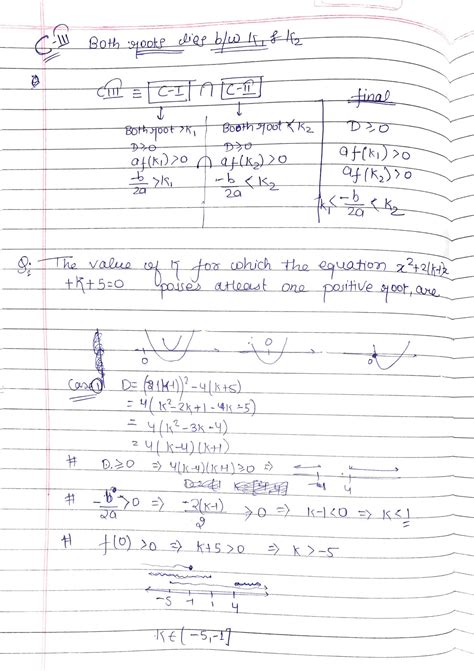 C-III Both roots lies b/w K₁ & K₂
CIII ≡ C-I ∩ C-II
final
Both root >K₁ Both root < K₂ D≥0
D≥0 D≥0 af(K₁)>0
af(K₁)>0 ∩ af(K₂)>0 af(K₂)>0
-b/2a >K₁ -b/2a < K₂ K₁< -b/2a < K₂
Q: The value of K for which the equation x²+2(K-1)x
+K+5=0 posses atleast one positive root, are
0 0 0
Case① D= (2(K-1))²-4(K+5)
= 4(K²-2K+1-K-5)
= 4(K²-3K-4)
= 4(K-4)(K+1)
# D≥0 ⇒ 4(K-4)(K+1)≥0 ⇒ -1 4
# -b/2a >0 ⇒ -2(K-1)/2 >0 ⇒ K-1<0 ⇒ K<1
# f(0) >0 ⇒ K+5>0 ⇒ K>-5
-5 -1 1 4
K∈(-5,-1]